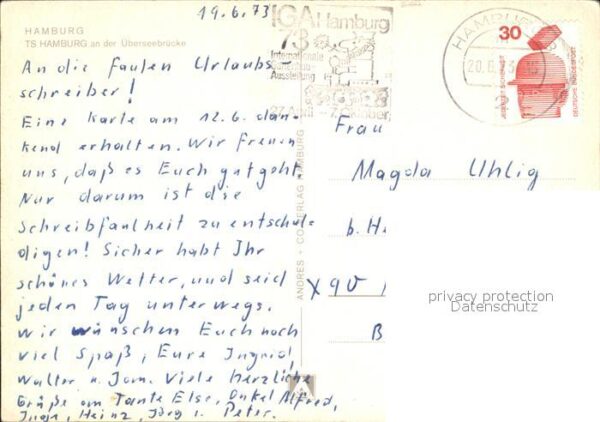 19.6.73
HAMBURG
TS HAMBURG an der Überseebrücke
An die faulen Urlaubs-
schreiber!
Eine Karte am 12.6. dan-
kend erhalten. Wir freuen
uns, daß es Euch gut geht.
Nur darum ist die
Schreibfaulheit zu entschul-
digen! Sicher habt Ihr
schönes Wetter, und seid
jeden Tag unterwegs.
Wir wünschen Euch noch
viel Spaß, Eure Ingrid,
Walter u. Jom. Viele herzliche
Grüße an Tante Else, Onkel Alfred,
Inge, Heinz, Jörg u. Peter.
IGA Hamburg
73
Internationale
Gartenbau
Ausstellung
HAMBURG
30
DEUTSCHE BUNDESPOST
ANDRES + CO VERLAG HAMBURG
Frau
Magda Uhlig
b. He
X90
B
privacy protection
Datenschutz